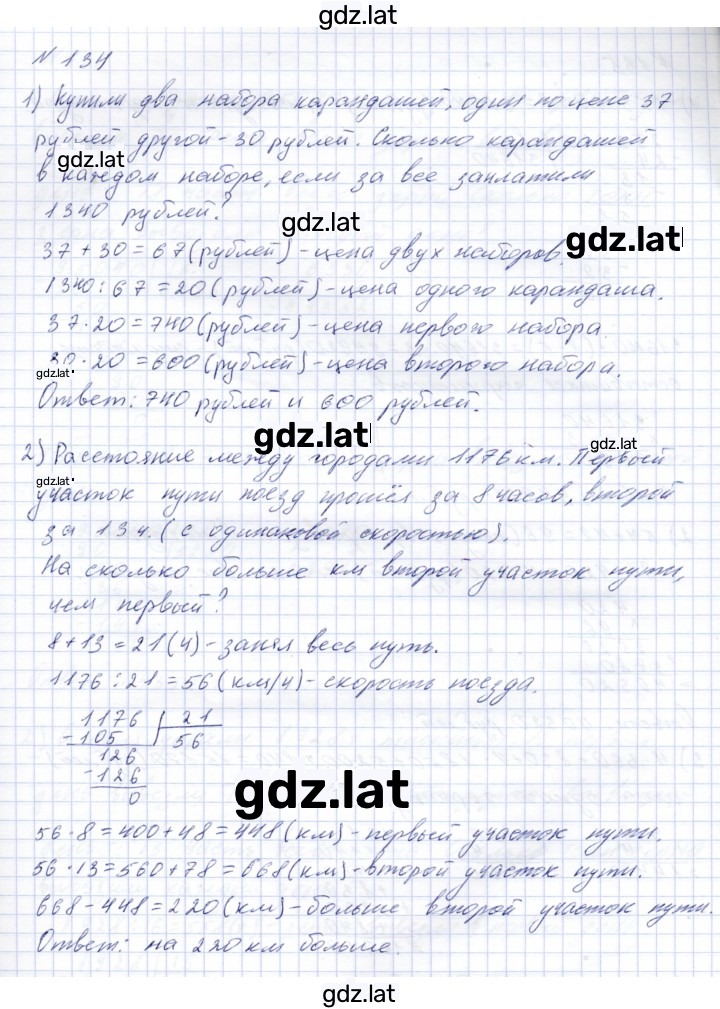 gdz.lat
N 134
1) Купили два набора карандашей, один по цене 37
рублей другой - 30 рублей. Сколько карандашей
gdz.lat
в каждом наборе, если за все заплатили
1340 рублей?
gdz.lat
gdz.lat
37 + 30 = 67 (рублей) - цена двух наборов.
1340 : 67 = 20 (рублей) - цена одного карандаша.
37 · 20 = 740 (рублей) - цена первого набора
30 · 20 = 600 (рублей) - цена второго набора.
gdz.lat
Ответ: 740 рублей и 600 рублей.
gdz.lat
gdz.lat
2) Расстояние между городами 1176 км. Первый
gdz.lat
участок пути поезд прошёл за 8 часов, второй
за 13 ч. (с одинаковой скоростью).
На сколько больше км второй участок пути,
чем первый?
8 + 13 = 21 (ч) - занял весь путь.
1176 : 21 = 56 (км/ч) - скорость поезда.
1176 21
- 105 56
126
- 126
0
gdz.lat
56 · 8 = 400 + 48 = 448 (км) - первый участок пути.
56 · 13 = 560 + 78 = 668 (км) - второй участок пути.
668 - 448 = 220 (км) - больше второй участок пути.
Ответ: на 220 км больше.
gdz.lat